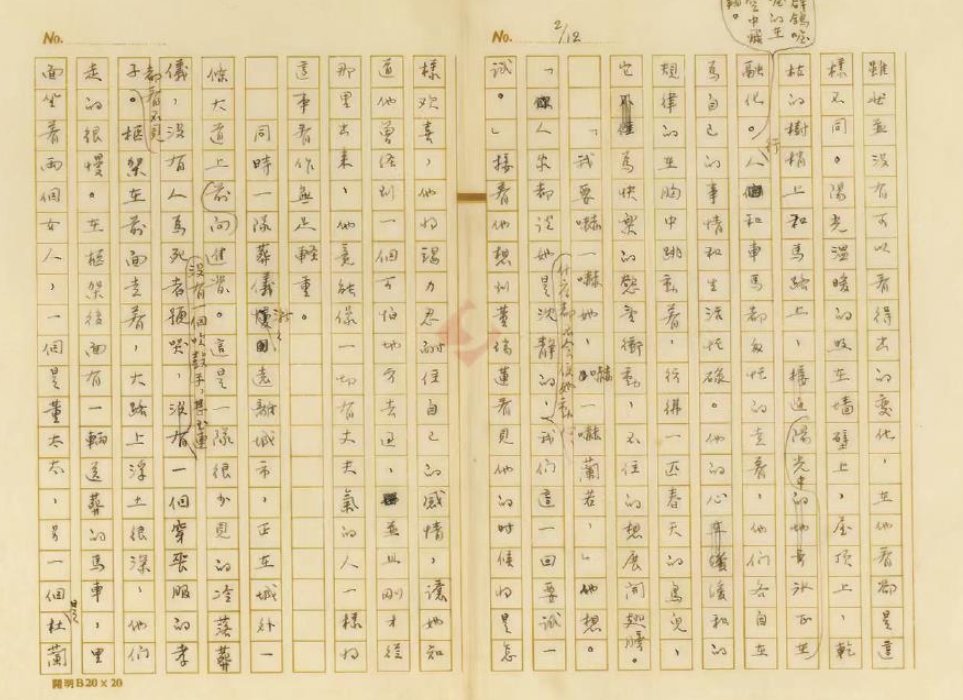 No. 2/12
群鴿嘹
亮的在
空中飛
翔。
雖然並沒有可以看得出的變化,在他看卻是這
樣不同。陽光溫暖的照在墻壁上,屋頂上,乾
枯的樹梢上和馬路上,接近陽光中的地方冰正在
融化。行人和車馬都匆忙的走着,他們各自在
爲自己的事情和生活忙碌。他的心
規律的在胸中跳動着,彷彿一匹春天的鳥兒,
它爲快樂的慾望衝動,不住的想展開翅膀。
「我要嚇一嚇她,嚇一嚇蘭若,」他想。
「人家都說她是沈靜的,我們這一回要試一
試。」接着他想到董瑞蓮看見他的時候的是怎
No.
樣歡喜,他的竭力忍耐住自己的感情,讓她知
道他曾經到一個可怕地方去過,並且剛才從
那里出來,他竟能像一切有丈夫氣的人一樣的
這事看作無足輕重。
同時一隊葬儀慢慢遠離城市,正在城外一
條大道上前向進發。這是一隊很少見的冷落葬
儀,沒有人爲死者哽哭,沒有一個吹鼓手,沒有一個穿喪服的孝
子都看不見。框架在前面走着,大路上浮土很深,他們
走的很慢。在柩架後面有一輛送葬的馬車,里
面坐着兩個女人,一個是董太太,另一個是杜蘭
開明B20×20